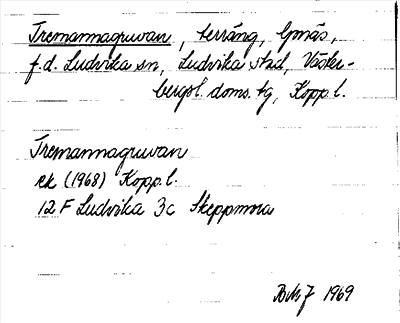 Tremannagruvan, terräng, Gonäs,
f.d. Ludvika sn, Ludvika stad, Väster-
bergsl. doms. tg, Kopp. l.
Tremannagruvan
ek (1968) Kopp. l.
12 F Ludvika 3c Skeppmora
1969